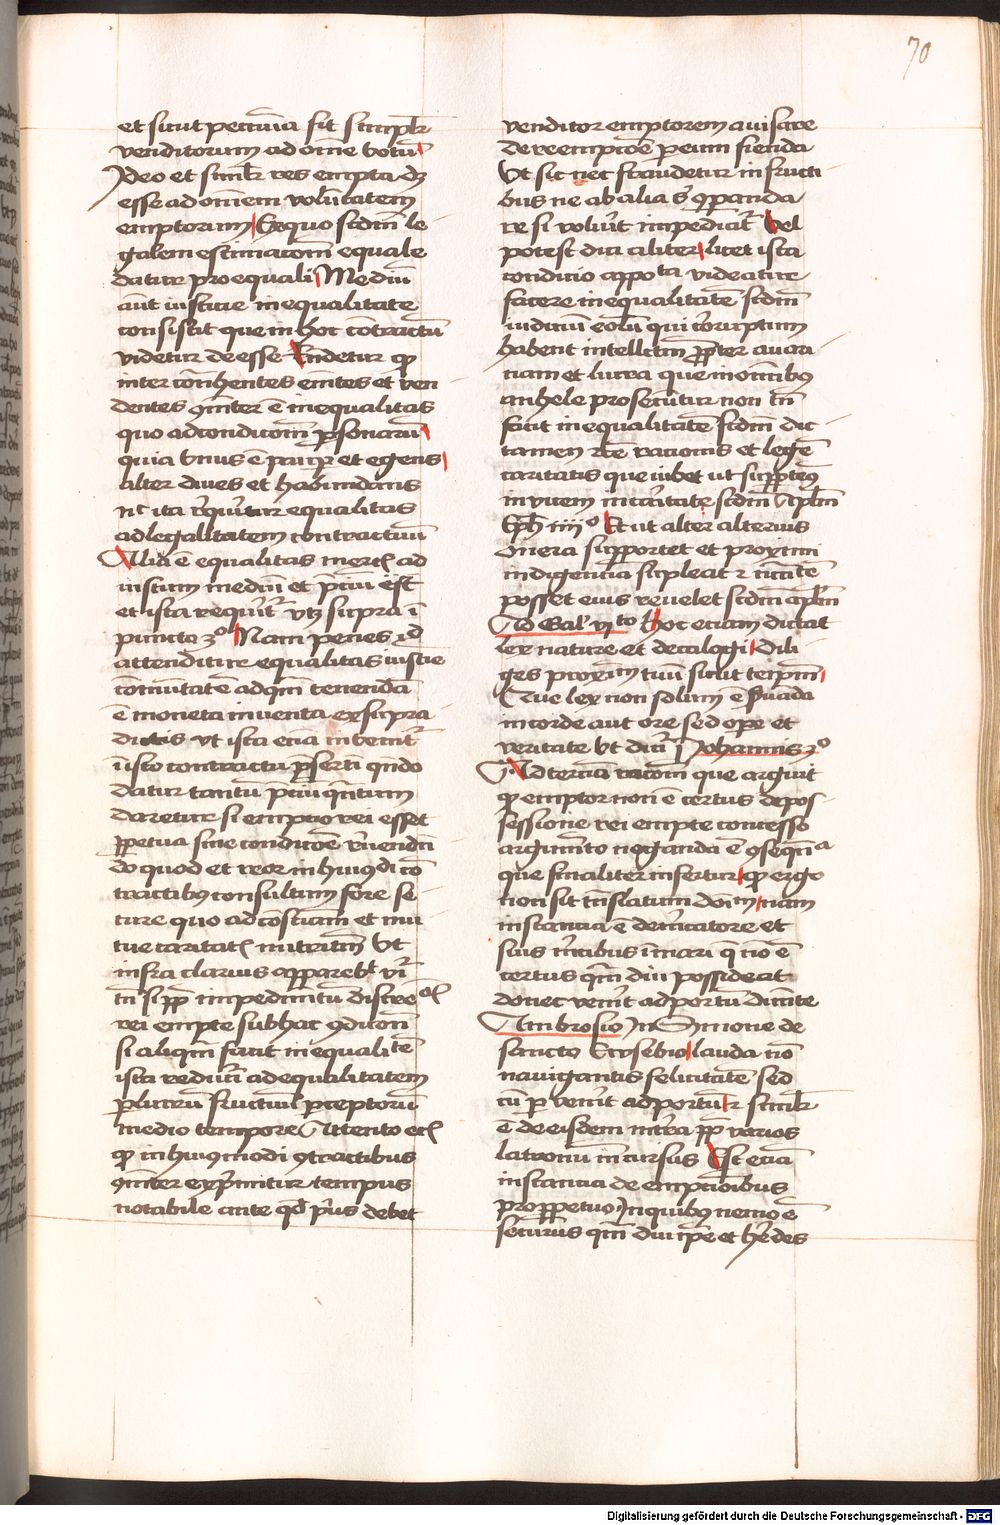 70
et sicut pecunia sit simplr
venditorum ad omne votum
Ideo et similr res empta dz
esse ad omnem voluntatem
emptorum Ex quo scdm le
galem estimacom equale
datur pro equali Medium
aut iusticie in equalitate
consistit que in hoc contractu
videtur deesse videtur qd
inter contrahentes emtes et ven
dentes cõiter ẽ inequalitas
quo ad condicom personarum
quia vnus ẽ pauper et egens
alter diues et habundans
nec ita requiritur equalitas
ad legalitatem contractuum
Alia ẽ equalitas mercis ad
iustum medium et precium est
et ista requirit vtz supra in
puncto 3o Nam penes id
attenditur equalitas iusticie
comutate ad quam tenenda
ẽ moneta inuenta ex supra
dictis vt ista etiam inuenitur
in isto contractu presertim quando
datur tantum precium quantum
daretur si emptio rei esset
perpetua sine condicoe reuenden
do quod et reor in huiusmodi con
tractibus consultum fore se
cure quo ad consciam et mu
tue caritatis nutritum vt
infra clarius apparebit
tamen si propter impedimentum
rei empte sub hac condicom
si aliquam faciat inequalitatem
ista reducitur ad equalitatem
per lucrum fructuum perceptorum
medio tempore Attento etiam
qd in huiusmodi contractibus
cõiter exprimitur tempus
notabile ante quod prius debet
venditor emptorem auisare
de reempcoe per eum fienda
Vt sic nec fraudetur in fructi
bus ne ab alia
re si voluerit impediatur Vel
potest dici aliter licet ista
condicio apposita videatur
facere inequalitatem scdm
iudicium eorum qui corruptum
habent intellectum propter auari
ciam et lucra que in omnibus
anhele prosecuntur non tamen
facit inequalitatem scdm dic
tamen recte rationis et legem
caritatis que iubet ut supportemus
inuicem in caritate scdm Aplum
Eph iiijo Et ut alter alterius
onera supportet et proximi
indigencia supleat
posset eius reuelet scdm aplm
Ad Gal vito Hoc etiam dictat
lex nature et decalogi Dili
ges proximum tuum sicut teipsum
Que lex non solum ẽ seruanda
in corde aut ore sed opere et
veritate vt dicitur Johannis 3o
Ad terciam racom que arguit
qd emptor non ẽ certus de pos
sessione rei empte concesso
argumento neganda ẽ consequencia
que finaliter infertur qd ergo
non sit translatum dominium nam
instancia ẽ de mercatore et
suis mercibus in mari qui non ẽ
certus quam diu possideat
donec venerit ad portum dicente
Ambrosio In Sermone de
sancto Eusebio lauda non
nauigantis felicitatem sed
cum peruenerit ad portum similr
ẽ de eisdem in terra propter varios
latronum incursus Est etiam
instancia de emptionibus
pro perpetuo In quibus nemo ẽ
securus quam diu ipse et heredes
Digitalisierung gefördert durch die Deutsche Forschungsgemeinschaft - DFG